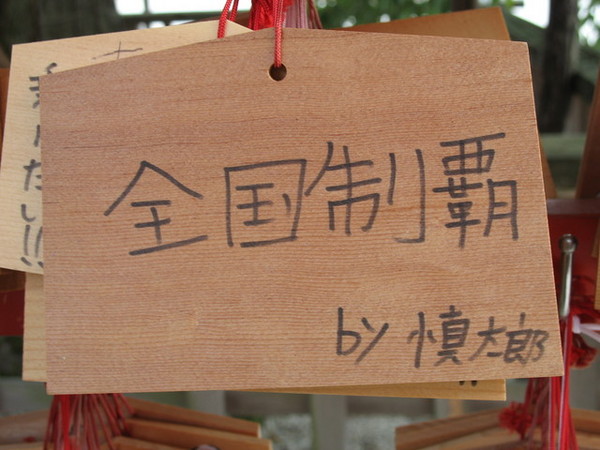 全国制覇
by 慎太郎